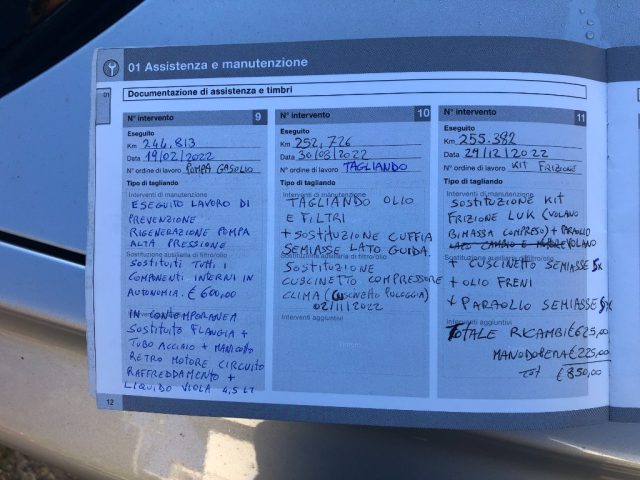 01 Assistenza e manutenzione
01
Documentazione di assistenza e timbri
N° intervento 9
Eseguito
Km 244.813
Data 19/02/2022
N° ordine di lavoro POMPA GASOLIO
Tipo di tagliando
Interventi di manutenzione
ESEGUITO LAVORO DI
PREVENZIONE
RIGENERAZIONE POMPA
ALTA PRESSIONE
Sostituzione ausiliaria di filtro/olio
SOSTITUITI TUTTI I
COMPONENTI INTERNI IN
AUTONOMIA. € 600,00
IN CONTEMPORANEA
Interventi aggiuntivi
SOSTITUITO FLANGIA +
TUBO ACCIAIO + MANICOTTO
RETRO MOTORE CIRCUITO
RAFFREDDAMENTO +
LIQUIDO VIOLA 4,5 LT
12
N° intervento 10
Eseguito
Km 252.726
Data 30/08/2022
N° ordine di lavoro TAGLIANDO
Tipo di tagliando
Interventi di manutenzione
TAGLIANDO OLIO
E FILTRI
+ SOSTITUZIONE CUFFIA
SEMIASSE LATO GUIDA.
Sostituzione ausiliaria di filtro/olio
SOSTITUZIONE
CUSCINETTO COMPRESSORE
CLIMA (CUSCINETTO PULEGGIA)
02/11/2022
Interventi aggiuntivi
N° intervento 11
Eseguito
Km 255.382
Data 29/12/2022
N° ordine di lavoro KIT FRIZIONE
Tipo di tagliando
Interventi di manutenzione
SOSTITUZIONE KIT
FRIZIONE LUK (VOLANO
BIMASSA COMPRESO) + PARAOLIO
LATO CAMBIO E MOTORE VOLANO
Sostituzione ausiliaria di filtro/olio
+ CUSCINETTO SEMIASSE SX
+ OLIO FRENI
+ PARAOLIO SEMIASSE SX
Interventi aggiuntivi
TOTALE RICAMBI € 625,00
MANODOPERA € 225,00
TOT € 850,00